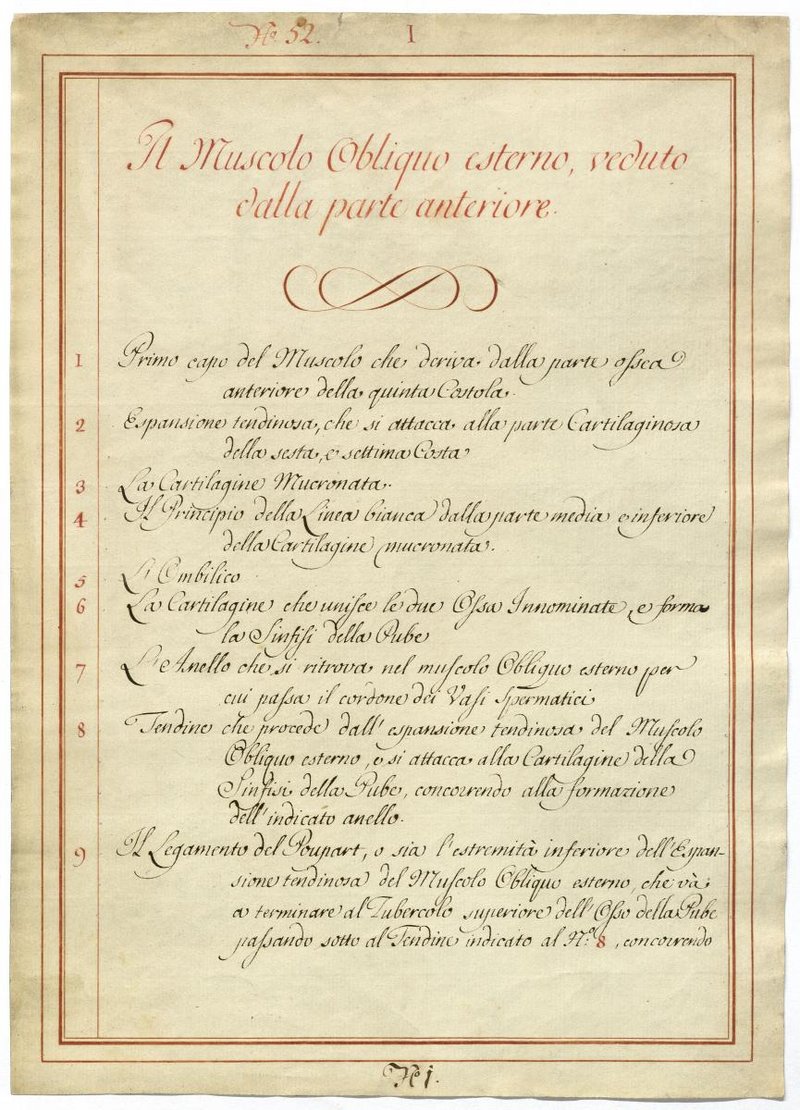 No. 52. I
Il Muscolo Obliquo esterno, veduto
dalla parte anteriore.
1 Primo capo del Muscolo che deriva dalla parte ossea
anteriore della quinta Costola.
2 Espansione tendinosa, che si attacca alla parte Cartilaginosa
della sesta, e settima Costa
3 La Cartilagine Mucronata.
4 Il Principio della Linea bianca dalla parte media e inferiore
della Cartilagine mucronata.
5 L'Ombilico
6 La Cartilagine che unisce le due Ossa Innominate, e forma
la Sinfisi della Pube
7 L'Anello che si ritrova nel muscolo Obliquo esterno per
cui passa il cordone dei Vasi Spermatici
8 Tendine che procede dall'espansione tendinosa del Muscolo
Obliquo esterno, e si attacca alla Cartilagine della
Sinfisi della Pube, concorrendo alla formazione
dell'indicato anello.
9 Il Legamento del Poupart, o sia l'estremità inferiore dell'Espan-
sione tendinosa del Muscolo Obliquo esterno, che và
a terminare al Tubercolo superiore dell'Osso della Pube
passando sotto al Tendine indicato al N.º 8, concorrendo
No 1.